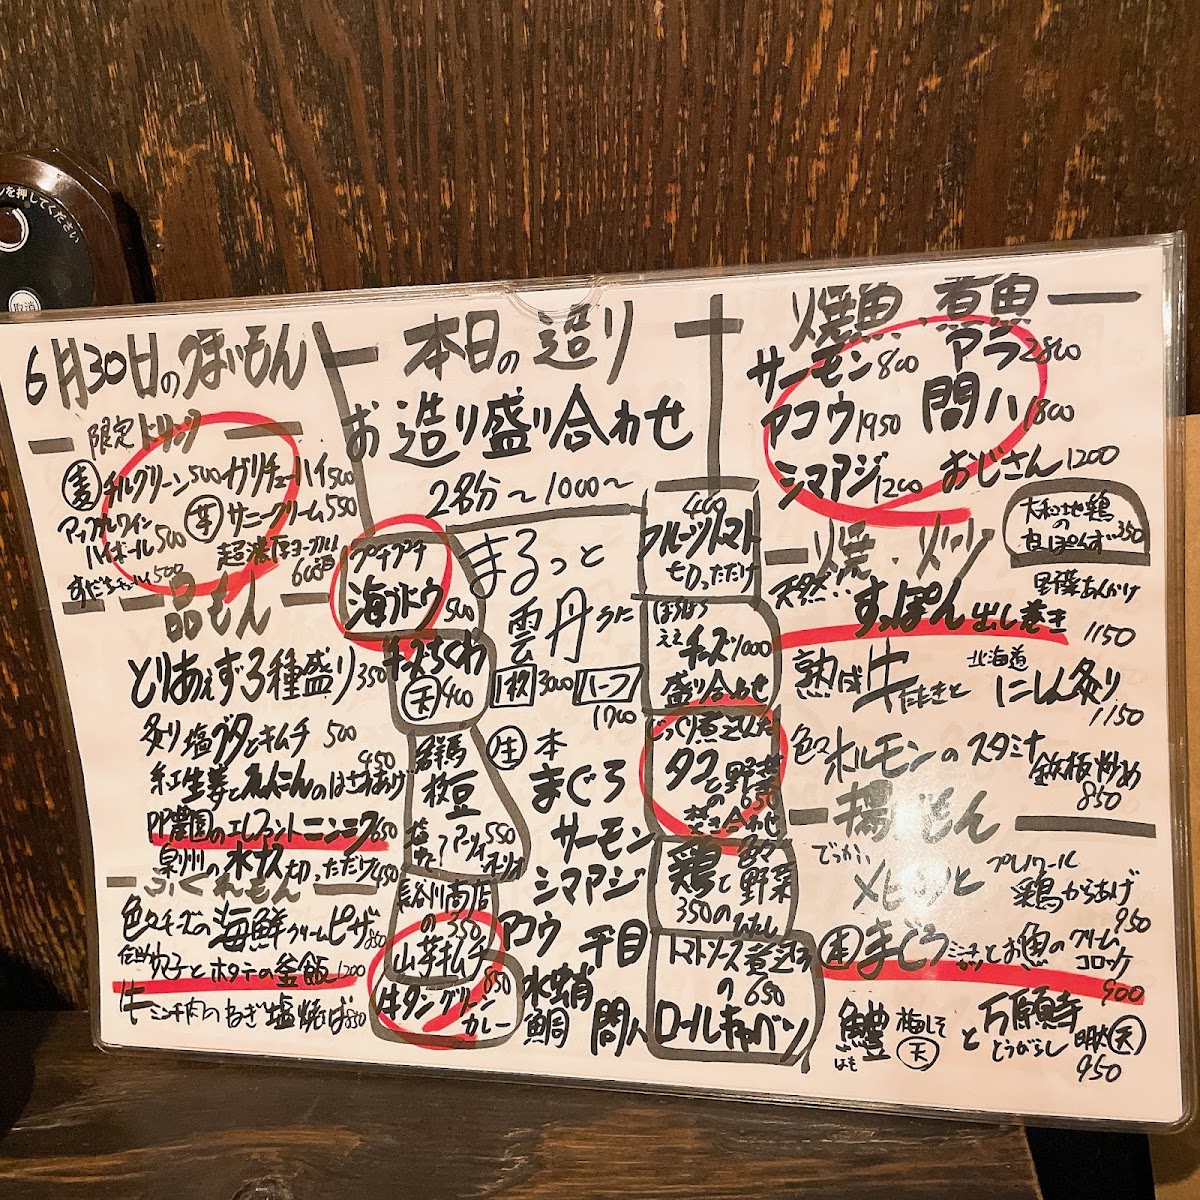 ンを押してください
取消
6月30日のうまいもん
限定ドリンク
麦 チルグリーン500 ガリチューハイ500
アップルワインハイボール500
芋 サニークリーム550
すだちチューハイ500
超濃厚ヨーグルト600
一品もん
とりあえず3種盛り350
炙り塩ブタとキムチ 500
紅生姜とれんこんのはさみあげ450
PP農園のエレファントニンニク650
泉州の水ナス切っただけ450
ふくれもん
色々チーズの海鮮クリームピザ850
穴子とホタテの釜飯1200
牛ミンチ肉のねぎ塩焼そば850
本日の造り
お造り盛り合わせ
2名分～1000～
プチプチ
海ブドウ500
チーズちくわ
天 400
群馬
枝豆
550
長谷川商店
の350
山芋キムチ
牛タングリーン
カレー
850
まるっと
雲丹
うに
1枚3000 ハーフ
1700
生 本
まぐろ
サーモン
シマアジ
アコウ 平目
水蛸
鯛 間八
400
フルーツトマト
切っただけ
ほろほろ
ええチーズ1000
盛り合わせ
じっくり煮込んだ
タコと野菜
の650
焚き合わせ
鶏と色々野菜
350のひたし
トマトソース煮込み
の650
ロールキャベツ
焼魚・煮魚
サーモン800 アラ2800
アコウ1950 間八1800
シマアジ1200 おじさん1200
大和地鶏
の
ねぎぽんず350
一焼・炒り
天然!! すっぽん出し巻き
野菜あんかけ
1150
熟成牛たたきと 北海道 にしん炙り
1150
色々ホルモンのスタミナ
鉄板炒め
850
揚げもん
でっかい
メヒカリと ブレノワール
鶏からあげ
950
本 まぐろミンチカツとお魚のクリーム
コロッケ
900
鱧 梅しそ 天 と 万願寺
はも とうがらし 明太 天
950